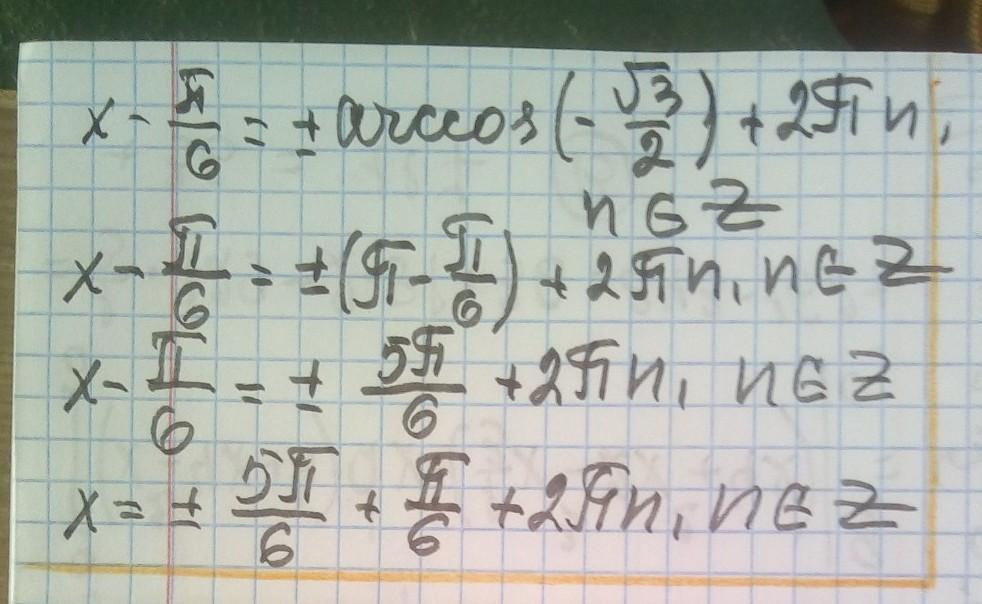 x - π/6 = ± arccos(-√3/2) + 2πn,
n ∈ Z
x - π/6 = ±(π - π/6) + 2πn, n ∈ Z
x - π/6 = ± 5π/6 + 2πn, n ∈ Z
x = ± 5π/6 + π/6 + 2πn, n ∈ Z